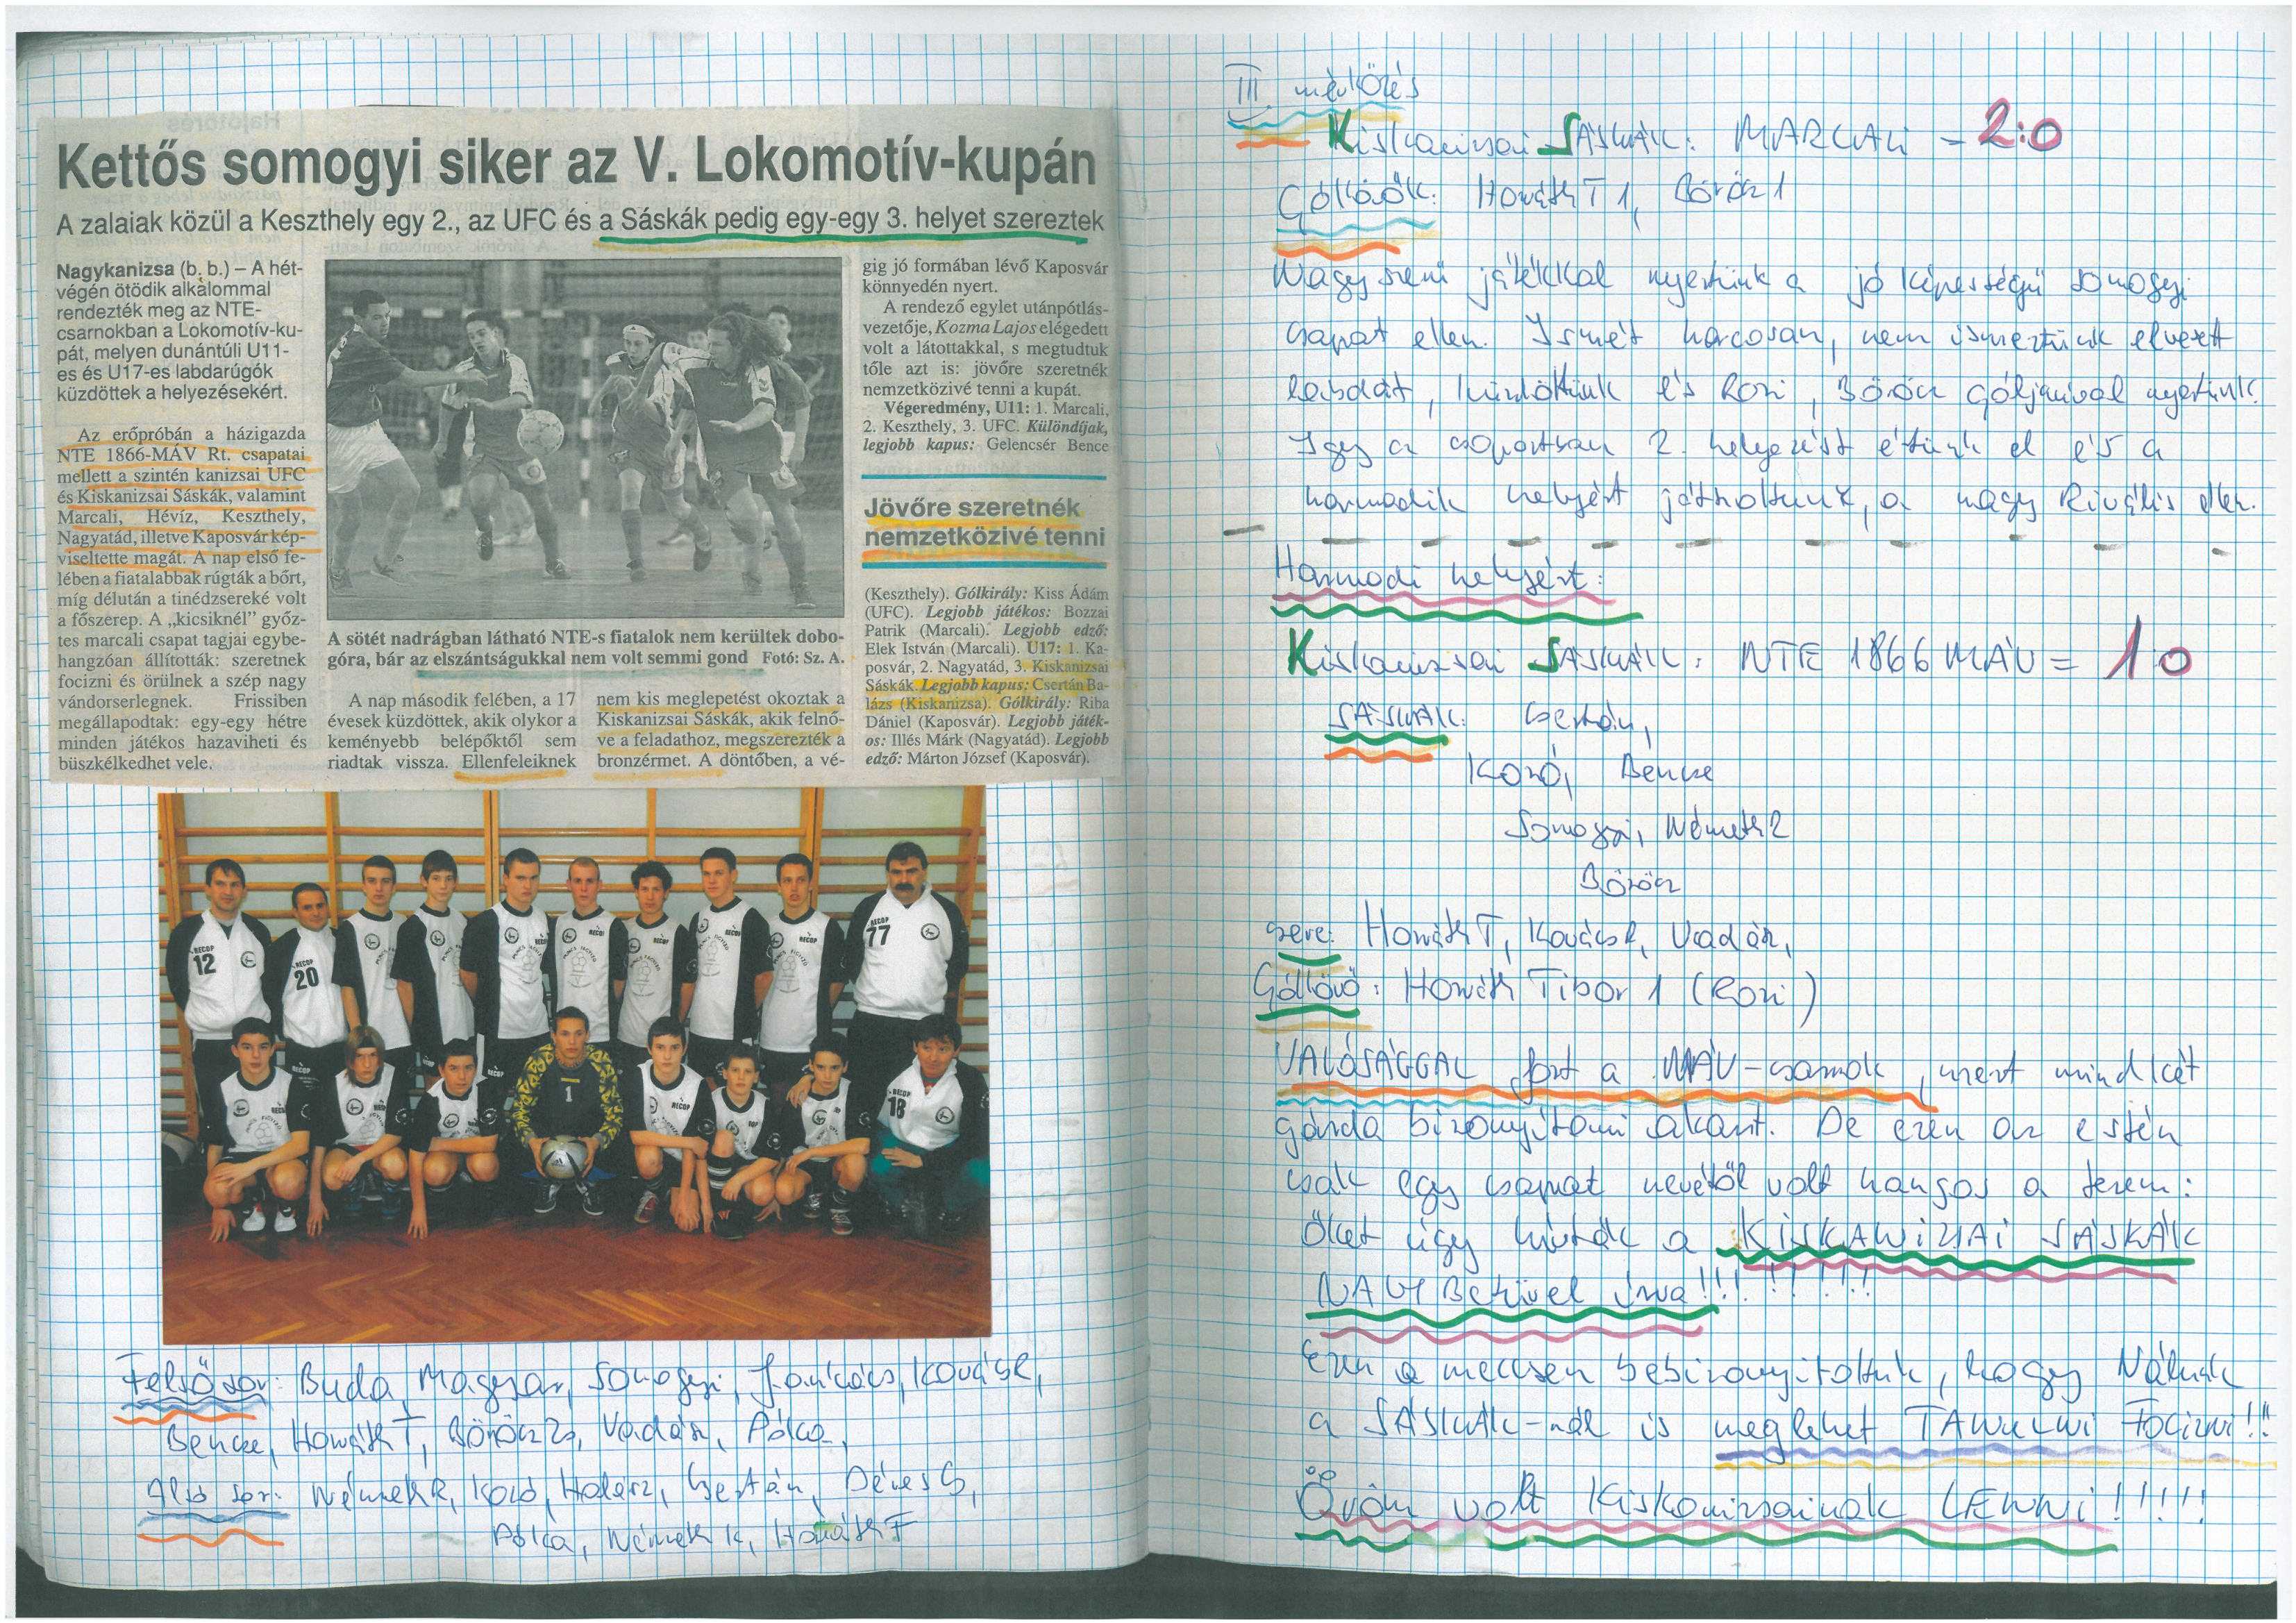 Kettős somogyi siker az V. Lokomotív-kupán
A zalaiak közül a Keszthely egy 2., az UFC és a Sáskák pedig egy-egy 3. helyet szereztek
Nagykanizsa (b. b.) – A hét-
végén ötödik alkalommal
rendezték meg az NTE-
csarnokban a Lokomotív-ku-
pát, melyen dunántúli U11-
es és U17-es labdarúgók
küzdöttek a helyezésekért.
Az erőpróbán a házigazda
NTE 1866-MÁV Rt. csapatai
mellett a szintén kanizsai UFC
és Kiskanizsai Sáskák, valamint
Marcali, Hévíz, Keszthely,
Nagyatád, illetve Kaposvár kép-
viseltette magát. A nap első fe-
lében a fiatalabbak rúgták a bőrt,
míg délután a tinédzsereké volt
a főszerep. A „kicsiknél” győz-
tes marcali csapat tagjai egybe-
hangzóan állították: szeretnek
focizni és örülnek a szép nagy
vándorserlegnek. Frissiben
megállapodtak: egy-egy hétre
minden játékos hazaviheti és
büszkélkedhet vele.
A sötét nadrágban látható NTE-s fiatalok nem kerültek dobo-
góra, bár az elszántságukkal nem volt semmi gond Fotó: Sz. A.
A nap második felében, a 17
évesek küzdöttek, akik olykor a
keményebb belépőktől sem
riadtak vissza. Ellenfeleiknek
nem kis meglepetést okoztak a
Kiskanizsai Sáskák, akik felnő-
ve a feladathoz, megszerezték a
bronzérmet. A döntőben, a vé-
gig jó formában lévő Kaposvár
könnyedén nyert.
A rendező egylet utánpótlás-
vezetője, Kozma Lajos elégedett
volt a látottakkal, s megtudtuk
tőle azt is: jövőre szeretnék
nemzetközivé tenni a kupát.
Végeredmény, U11: 1. Marcali,
2. Keszthely, 3. UFC. Különdíjak,
legjobb kapus: Gelencsér Bence
Jövőre szeretnék
nemzetközivé tenni
(Keszthely). Gólkirály: Kiss Ádám
(UFC). Legjobb játékos: Bozzai
Patrik (Marcali). Legjobb edző:
Elek István (Marcali). U17: 1. Ka-
posvár, 2. Nagyatád, 3. Kiskanizsai
Sáskák. Legjobb kapus: Csertán Ba-
lázs (Kiskanizsa). Gólkirály: Riba
Dániel (Kaposvár). Legjobb játék-
os: Illés Márk (Nagyatád). Legjobb
edző: Márton József (Kaposvár).
RECOP 12
RECOP 20
RECOP 77
1
18
Felső sor: Buda, Magyar, Somogyi, Jankács, Kovács R,
Bencze, Horváth T, Böröcz Zs, Vadász, Pólka,
Alsó sor: Németh R, Kozó, Halász, Csertán, Déves G,
Pólka, Németh K, Horváth F
III. mérkőzés
Kiskanizsai SÁSKÁK: MARCALI - 2:0
Góllövők: Horváth T 1, Böröcz 1
Nagyszerű játékkal nyertünk a jó képességű somogyi
csapat ellen. Ismét harcosan, nem ismertünk elveszett
labdát, küzdöttünk és Rozi, Böröcz góljaival nyertünk.
Igy a csoportban 2. helyezést értünk el és a
harmadik helyért játszottunk, a nagy Rivális ellen.
Harmadi helyért:
Kiskanizsai SÁSKÁK: NTE 1866 MÁV = 1:0
SÁSKÁK: Csertán,
Kozó, Bencze
Somogyi, Németh R
Böröcz
csere: Horváth T, Kovács R, Vadász,
Góllövő: Horváth Tibor 1 (Rozi)
VALÓSÁGGAL fort a MÁV-csarnok, mert mindkét
gárda bizonyítani akart. De ezen az estén
csak egy csapat nevétől volt hangos a terem:
Őket úgy hívták a KISKANIZSAI SÁSKÁK
NAGY Betüvel írva!!!!!!!!!
Ezen a meccsen bebizonyitottuk, hogy Nálunk
a SÁSKÁK-nál is meglehet TANULNI FOCIZNI!!!
Öröm volt Kiskanizsainak LENNI!!!!!